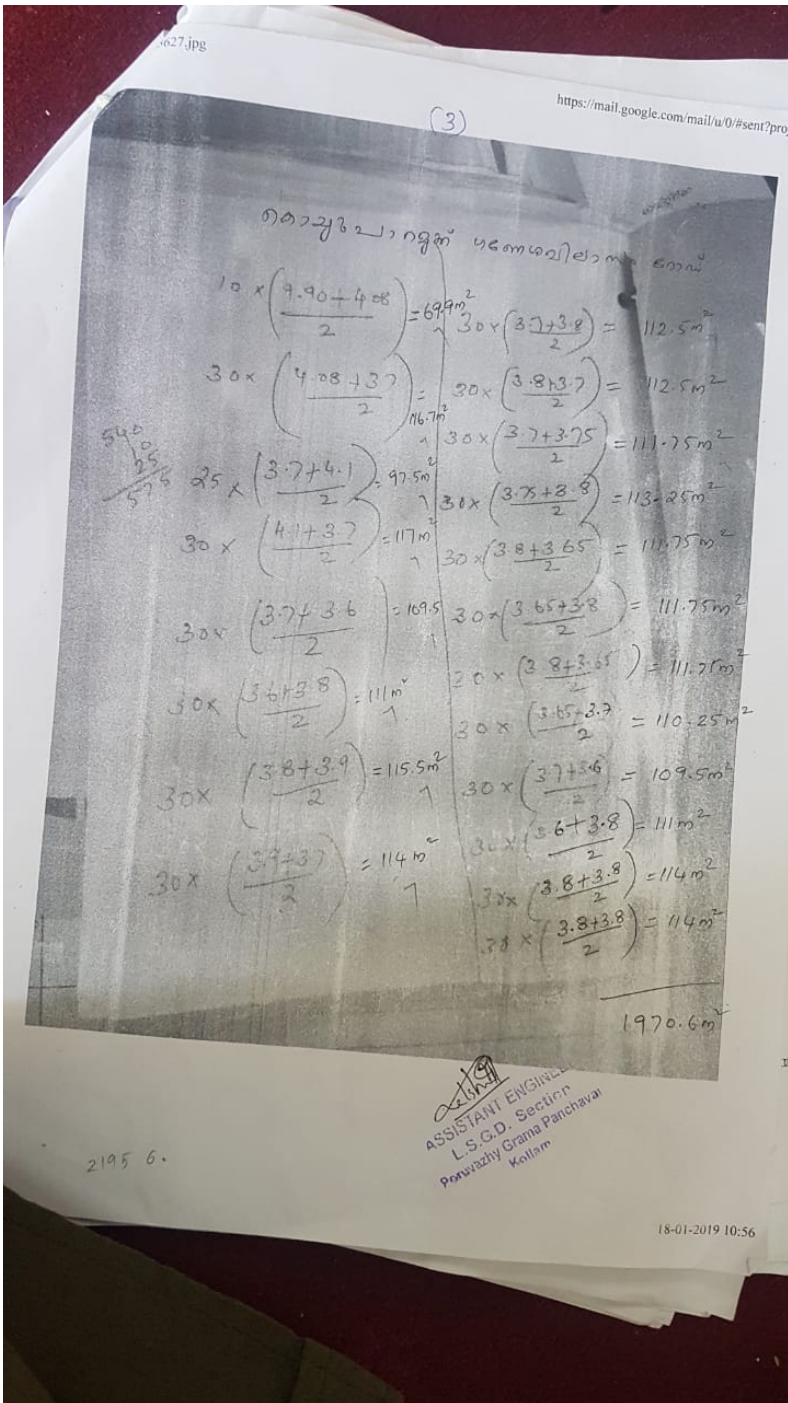 627.jpg
https://mail.google.com/mail/u/0/#sent?pro
(3)
റോഡ്
10 × (9.90+4.08 / 2) = 69.9m²
30× (4.08+3.7 / 2) = 116.7m²
540
10
25
575
25 × (3.7+4.1 / 2) = 97.5m²
30 × (4.1+3.7 / 2) = 117m²
30× (3.7+3.6 / 2) = 109.5
30× (3.6+3.8 / 2) = 111m²
30× (3.8+3.9 / 2) = 115.5m²
30× (3.9+3.7 / 2) = 114m²
30×(3.7+3.8 / 2) = 112.5m²
30×(3.8+3.7 / 2) = 112.5m²
30×(3.7+3.75 / 2) = 111.75m²
30×(3.75+3.8 / 2) = 113.25m²
30×(3.8+3.65 / 2) = 111.75m²
30×(3.65+3.8 / 2) = 111.75m²
30×(3.8+3.65 / 2) = 111.75m²
30×(3.65+3.7 / 2) = 110.25m²
30×(3.7+3.6 / 2) = 109.5m²
30×(3.6+3.8 / 2) = 111m²
30×(3.8+3.8 / 2) = 114m²
30×(3.8+3.8 / 2) = 114m²
1970.6m²
ASSISTANT ENGINE
L.S.G.D. Section
Poruvazhy Grama Panchayat
Kollam
2195 6.
18-01-2019 10:56